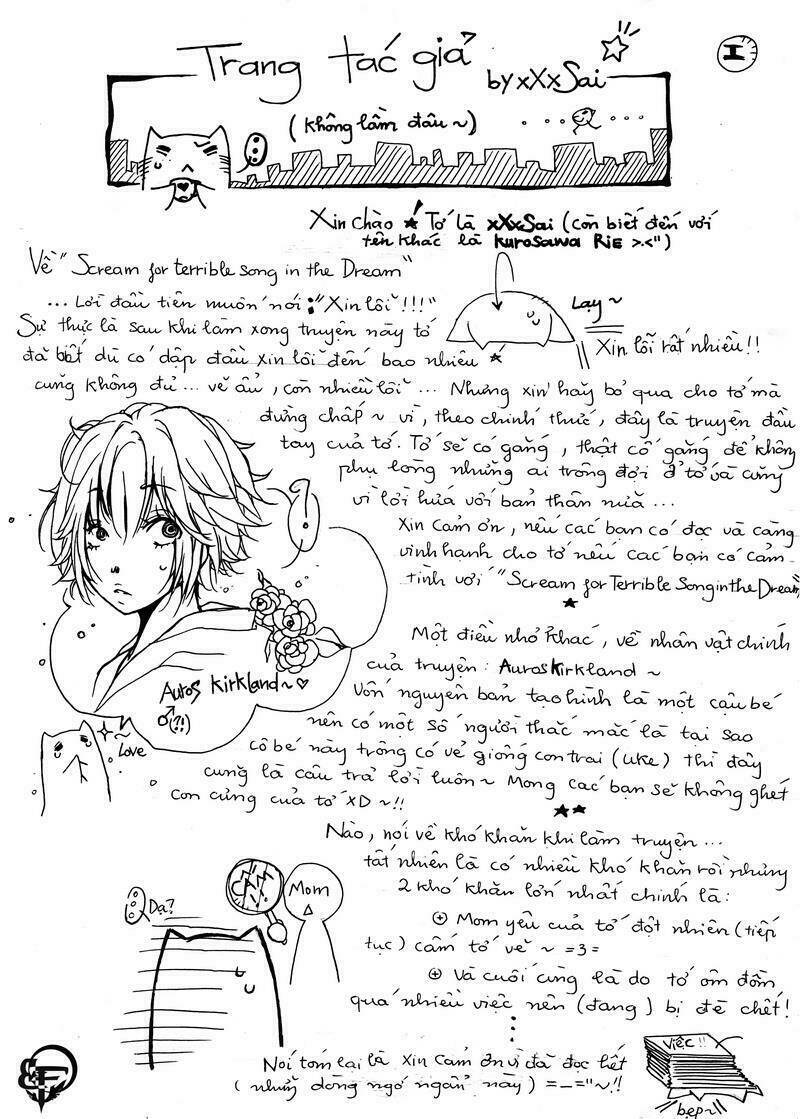 Trang tác giả
by xXxSai
I
(không lầm đâu ~)
Xin chào ★! Tớ là xXxSai (còn biết đến với
tên khác là Kurosawa Rie >.<")
Về "Scream for terrible song in the Dream"
... Lời đầu tiên muốn nói: "Xin lỗi!!!"
Lạy ~
Xin lỗi rất nhiều!!
Sự thực là sau khi làm xong truyện này tớ
đã biết dù có dập đầu xin lỗi đến bao nhiêu
cũng không đủ... vẽ ẩu, còn nhiều lỗi... Nhưng xin hãy bỏ qua cho tớ mà
đừng chấp ~ vì, theo chính thức, đây là truyện đầu
tay của tớ. Tớ sẽ cố gắng, thật cố gắng để không
phụ lòng những ai trông đợi ở tớ và cũng
vì lời hứa với bản thân nữa...
Xin cảm ơn, nếu các bạn có đọc và càng
vinh hạnh cho tớ nếu các bạn có cảm
tình với "Scream for Terrible Song in the Dream"
!?
Một điều nhỏ khác, về nhân vật chính
của truyện: Auros Kirkland ~
Auros Kirkland ~ ♡
♂(?!)
~ Love
Vốn nguyên bản tạo hình là một cậu bé
nên có một số người thắc mắc là tại sao
cô bé này trông có vẻ giống con trai (uke) thì đây
cũng là câu trả lời luôn ~ Mong các bạn sẽ không ghét
con cưng của tớ XD ~!!
Nào, nói về khó khăn khi làm truyện...
tất nhiên là có nhiều khó khăn rồi nhưng
2 khó khăn lớn nhất chính là:
CẤM!!
Mom
Dạ?
⊕ Mom yêu của tớ đột nhiên (tiếp
tục) cấm tớ vẽ ~ =3=
⊕ Và cuối cùng là do tớ ôm đồm
quá nhiều việc nên (đang) bị đè chết!
Việc!!
bẹp ~
Nói tóm lại là xin cảm ơn vì đã đọc hết
(những dòng ngớ ngẩn này) =_="~!!